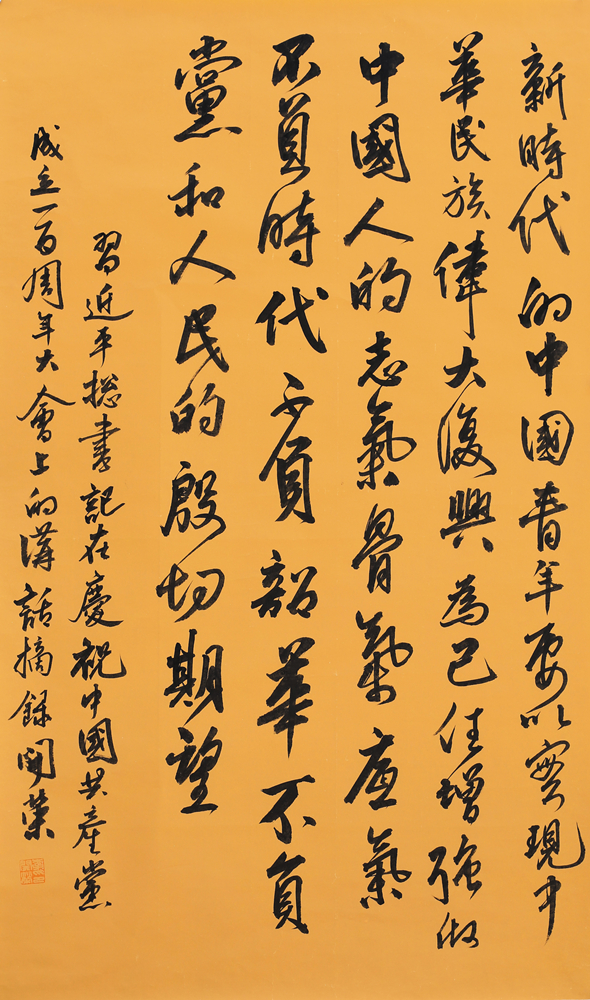 新時代的中國青年要以實現中
華民族偉大復興為己任增強做
中國人的志氣骨氣底氣
不負時代不負韶華不負
黨和人民的殷切期望
習近平總書記在慶祝中國共產黨
成立一百周年大會上的講話摘錄開榮